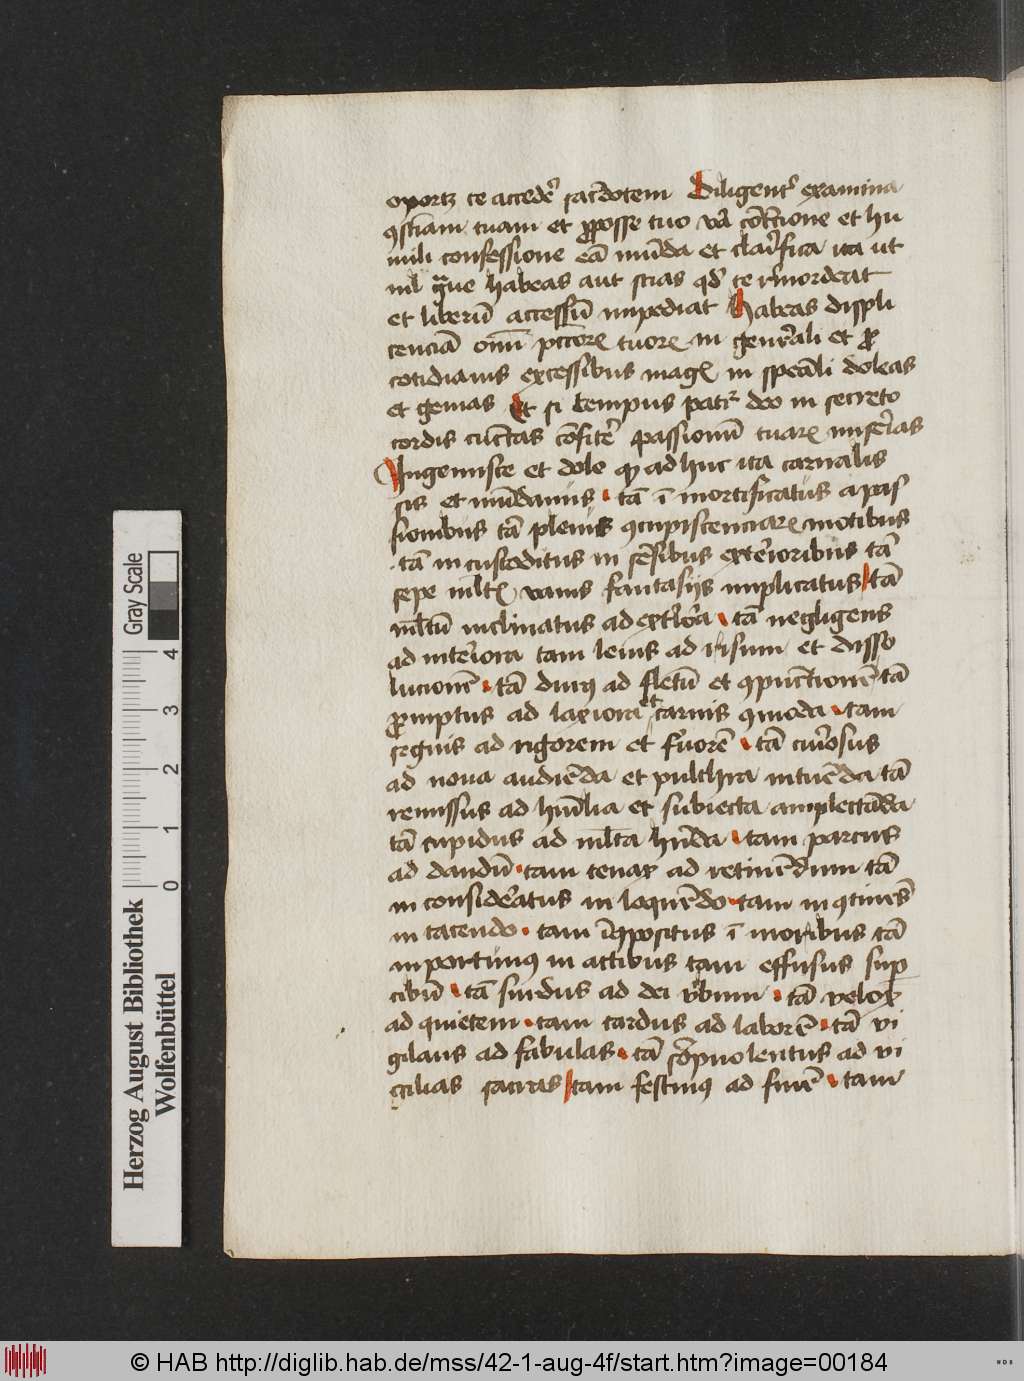 oportꝫ te accedeꝛ̉ sac̄dotem Diligent᷑ examina
ꝯsciam̄ tuam et ꝓposse tuo va̾ cōt͛cione et hu
mili confessione eā mūda et clai͛fica ita ut
nil gͣue habeas aut scias qd̾ te r̾mordeat
et liberū accessū impediat habeas displi
cenciā om̄i pcc̄oꝝ tuoꝝ in gen̾rali et ꝓ
cotidianis excessibus magꝭ in speāli doleas
et gemas Et si tempus patiꝛ̉ deo in secreto
cordis cūctas cōfite᷑ passionū tuaꝝ mise̾ias
Ingemisce et dole ꝙ adhuc ita carnalis
sis et mūdanus tā ī mortificatus a pas
sionibus tā plenus ꝯcupiscenciaꝝ motibus
tā incustoditus in sēsibus exte̾ioribus tā
sepe ml̄tꝭ vanis fantasijs implicatus tā
ml̄tū inclinatus ad ext̾ioͣa tā negligens
ad inte̾iora tam leuis ad risum et disso
lucionē tā durꝯ ad fletū et ꝯpūctionē tā
ꝓmptus ad laxiora et carnis ꝯmoda tam
segnis ad rigorem et fu̾orē tā cui̾osus
ad noua audiēda et pulchra intuēda tā
remissus ad hūilia et subiecta amplectāda
tā cupidus ad ml̄ta hn̄da tam parcus
ad dandū tam tenax ad retinēdum tā
in conside̾atus in loquēdo tam in ꝯtinēs
in tacendo tam īꝯpositus ī moribus tā
inportunꝯ in actibus tam effusus suꝑ
cibū tā surdus ad dei v̾bum tā velox
ad quietem tam tardus ad laborē tā vi
gilans ad fabulas tā sōpnolentus ad vi
gilias sacras tam festinꝯ ad finē tam
Herzog August Bibliothek
Wolfenbüttel
0 1 2 3 4
Gray Scale
© HAB http://diglib.hab.de/mss/42-1-aug-4f/start.htm?image=00184